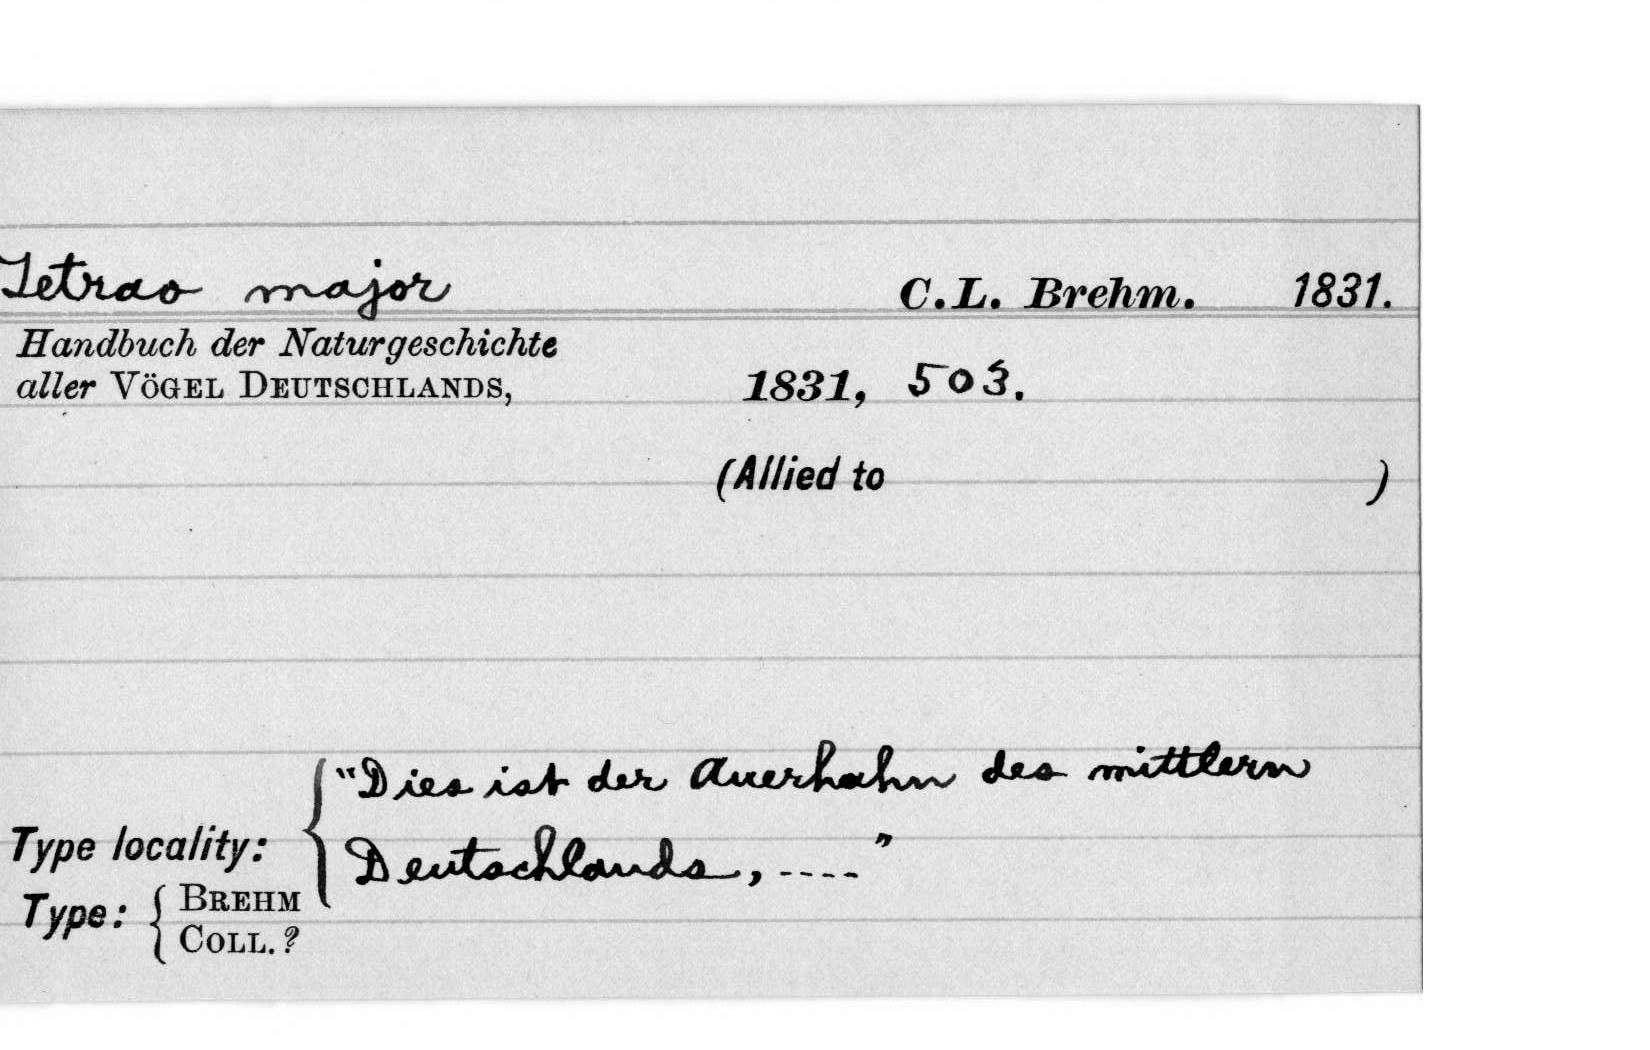 Tetrao major C.L. Brehm. 1831.
Handbuch der Naturgeschichte
aller Vögel Deutschlands, 1831, 503.
(Allied to )
"Dies ist der Auerhahn des mittlern
Type locality: Deutschlands, ----"
Type: { Brehm
Coll. ?